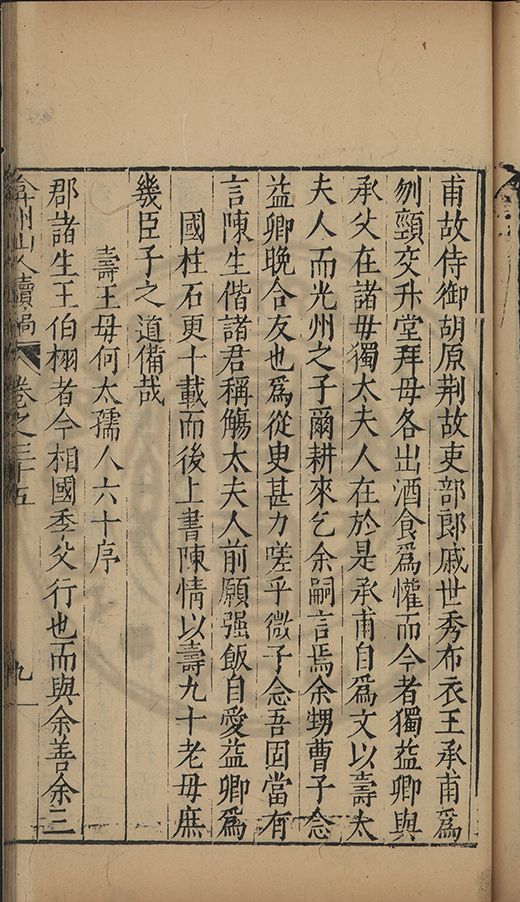 甫故侍御胡原荆故吏部郎戚世秀布衣王承甫爲
刎頸交升堂拜母各出酒食爲懽而今者獨益卿與
承父在諸母獨太夫人在於是承甫自爲文以壽太
夫人而光州之子爾耕來乞余嗣言焉余甥曹子念
益卿晚合友也爲從臾甚力嗟乎微子念吾固當有
言陳生偕諸君稱觴太夫人前願强飯自愛益卿爲
國柱石更十載而後上書陳情以壽九十老母庶
幾臣子之道備哉
壽王母何太孺人六十序
郡諸生王伯栩者今相國季父行也而與余善余三
弇州山人續稿
卷之三十五
九